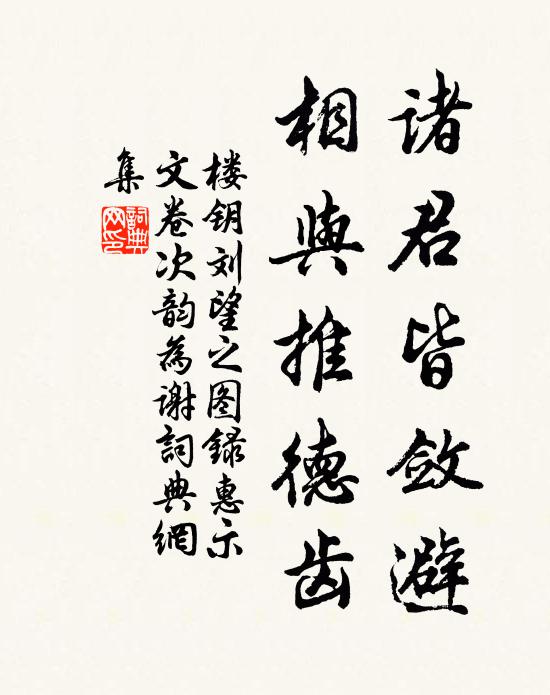 诸君皆敛避
相与推德齿
楼钥刘望之图録惠示
文卷次韵為谢詞典網
集
詞典网印